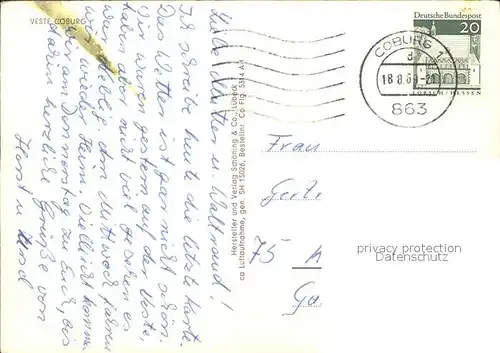 VESTE COBURG
Liebe Mutter u. Waltraud!
Ich schreibe heute die letzte Karte.
Das Wetter ist gar nicht schön.
Wir waren gestern auf der Veste,
haben aber nicht viel gesehen es
war neblig. Am Mittwoch fahren
wir wieder heim. Vielleicht kommen
wir am Donnerstag zu Euch, bis
dahin herzliche Grüße von
Horst u.
Hersteller und Verlag Schöning & Co., Lübeck
ca Luftaufnahme, gen. SH 15/26, Bestellnr. Co Flg. 5314 A-1
Deutsche Bundespost
20
LORSCH/HESSEN
COBURG 1
18.8.69-21
863
Frau
Gert
75 A
Ga
privacy protection
Datenschutz